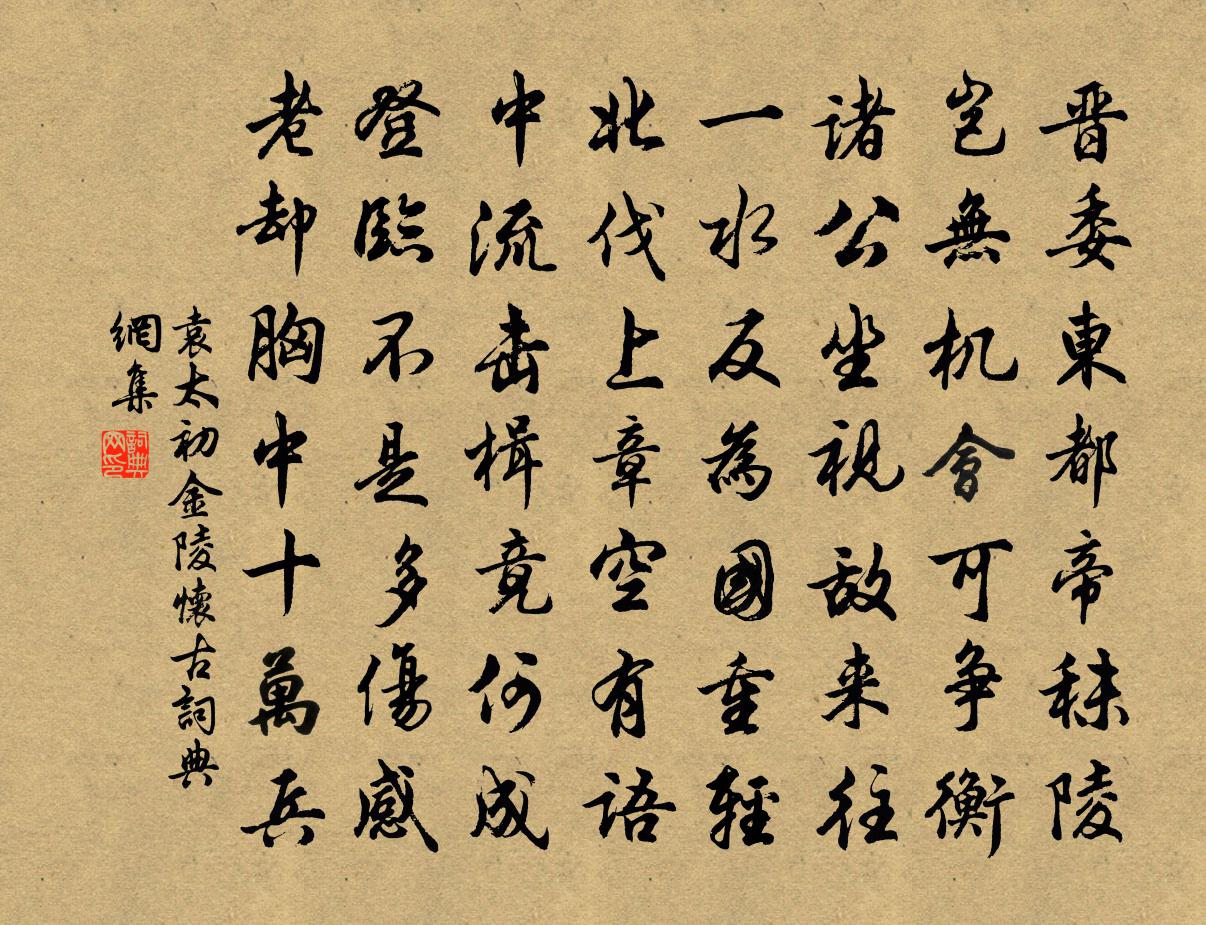 晋委東都帝秣陵
豈無机會可争衡
諸公坐視敌来往
一水反為國重輕
北伐上章空有語
中流击楫竟何成
登臨不是多傷感
老却胸中十萬兵
袁太初金陵懷古詞典
網集
詞典
网印